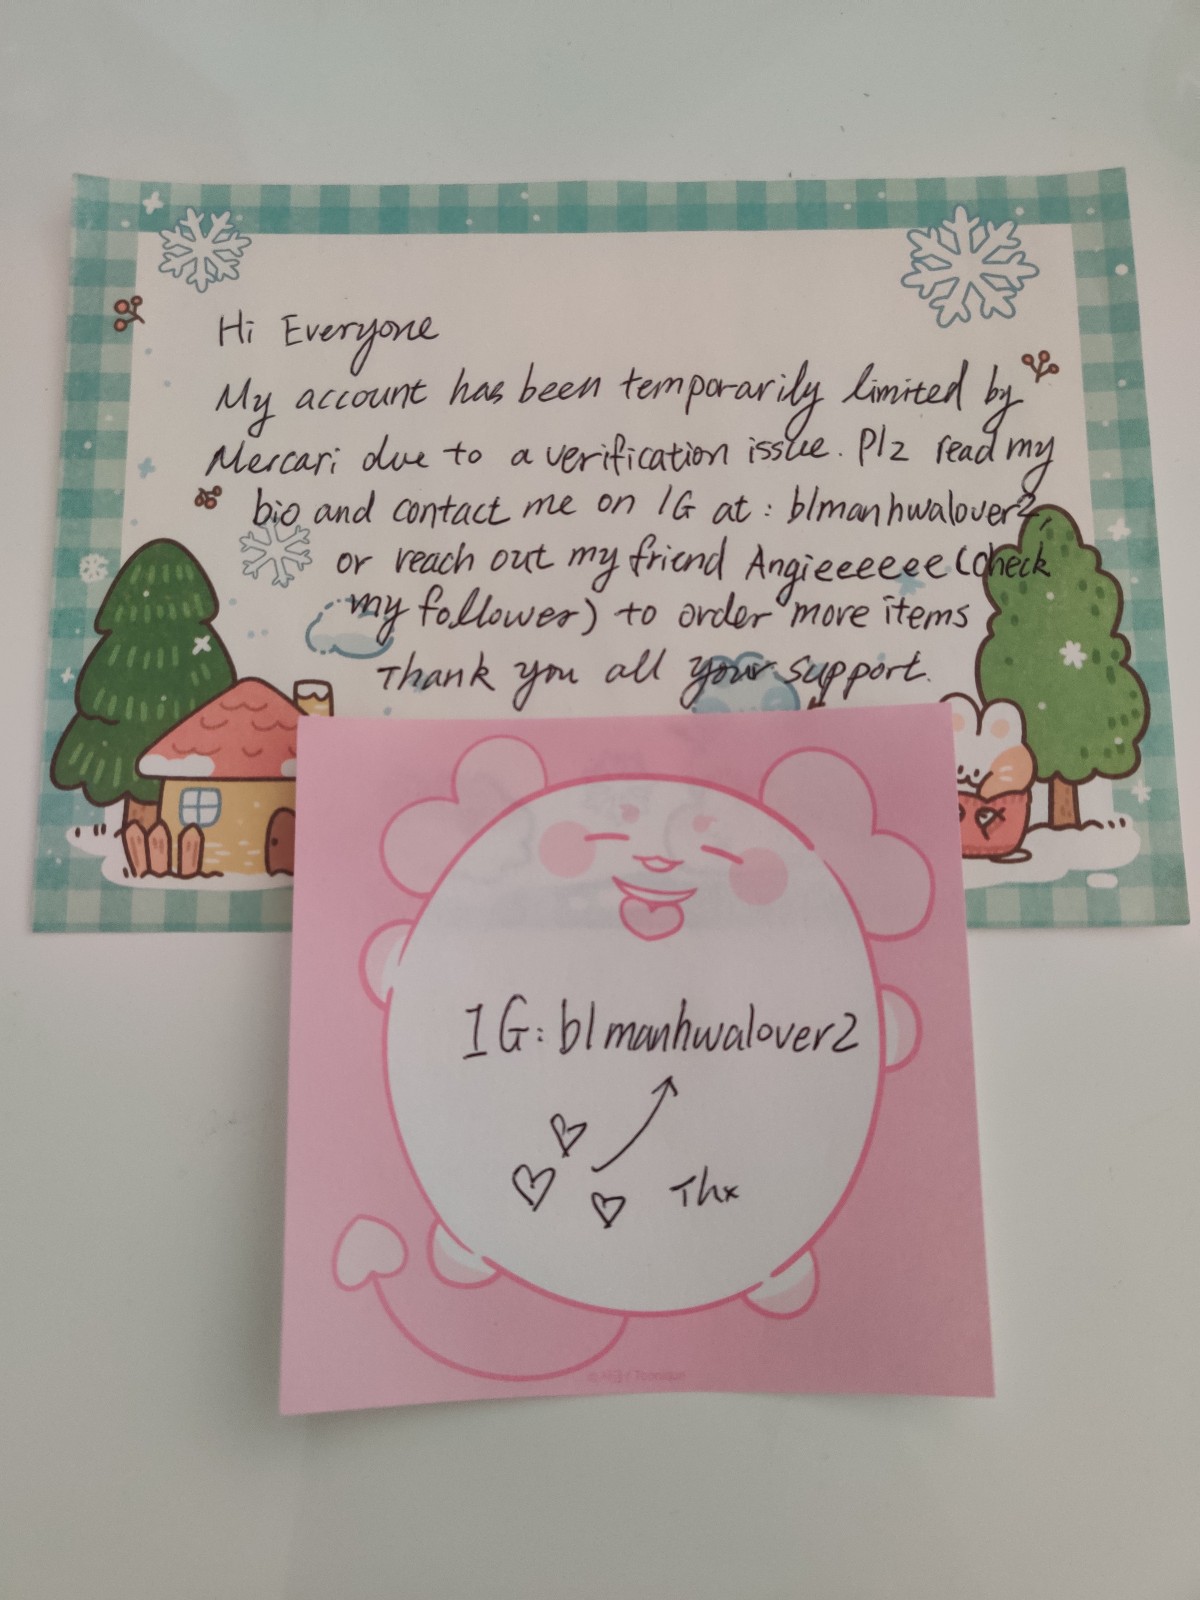 Hi Everyone
My account has been temporarily limited by
Mercari due to a verification issue. Plz read my
bio and contact me on IG at : blmanhwalover2,
or reach out my friend Angieeeeeee (check
my follower) to order more items
Thank you all your support.
IG: blmanhwalover2
Thx